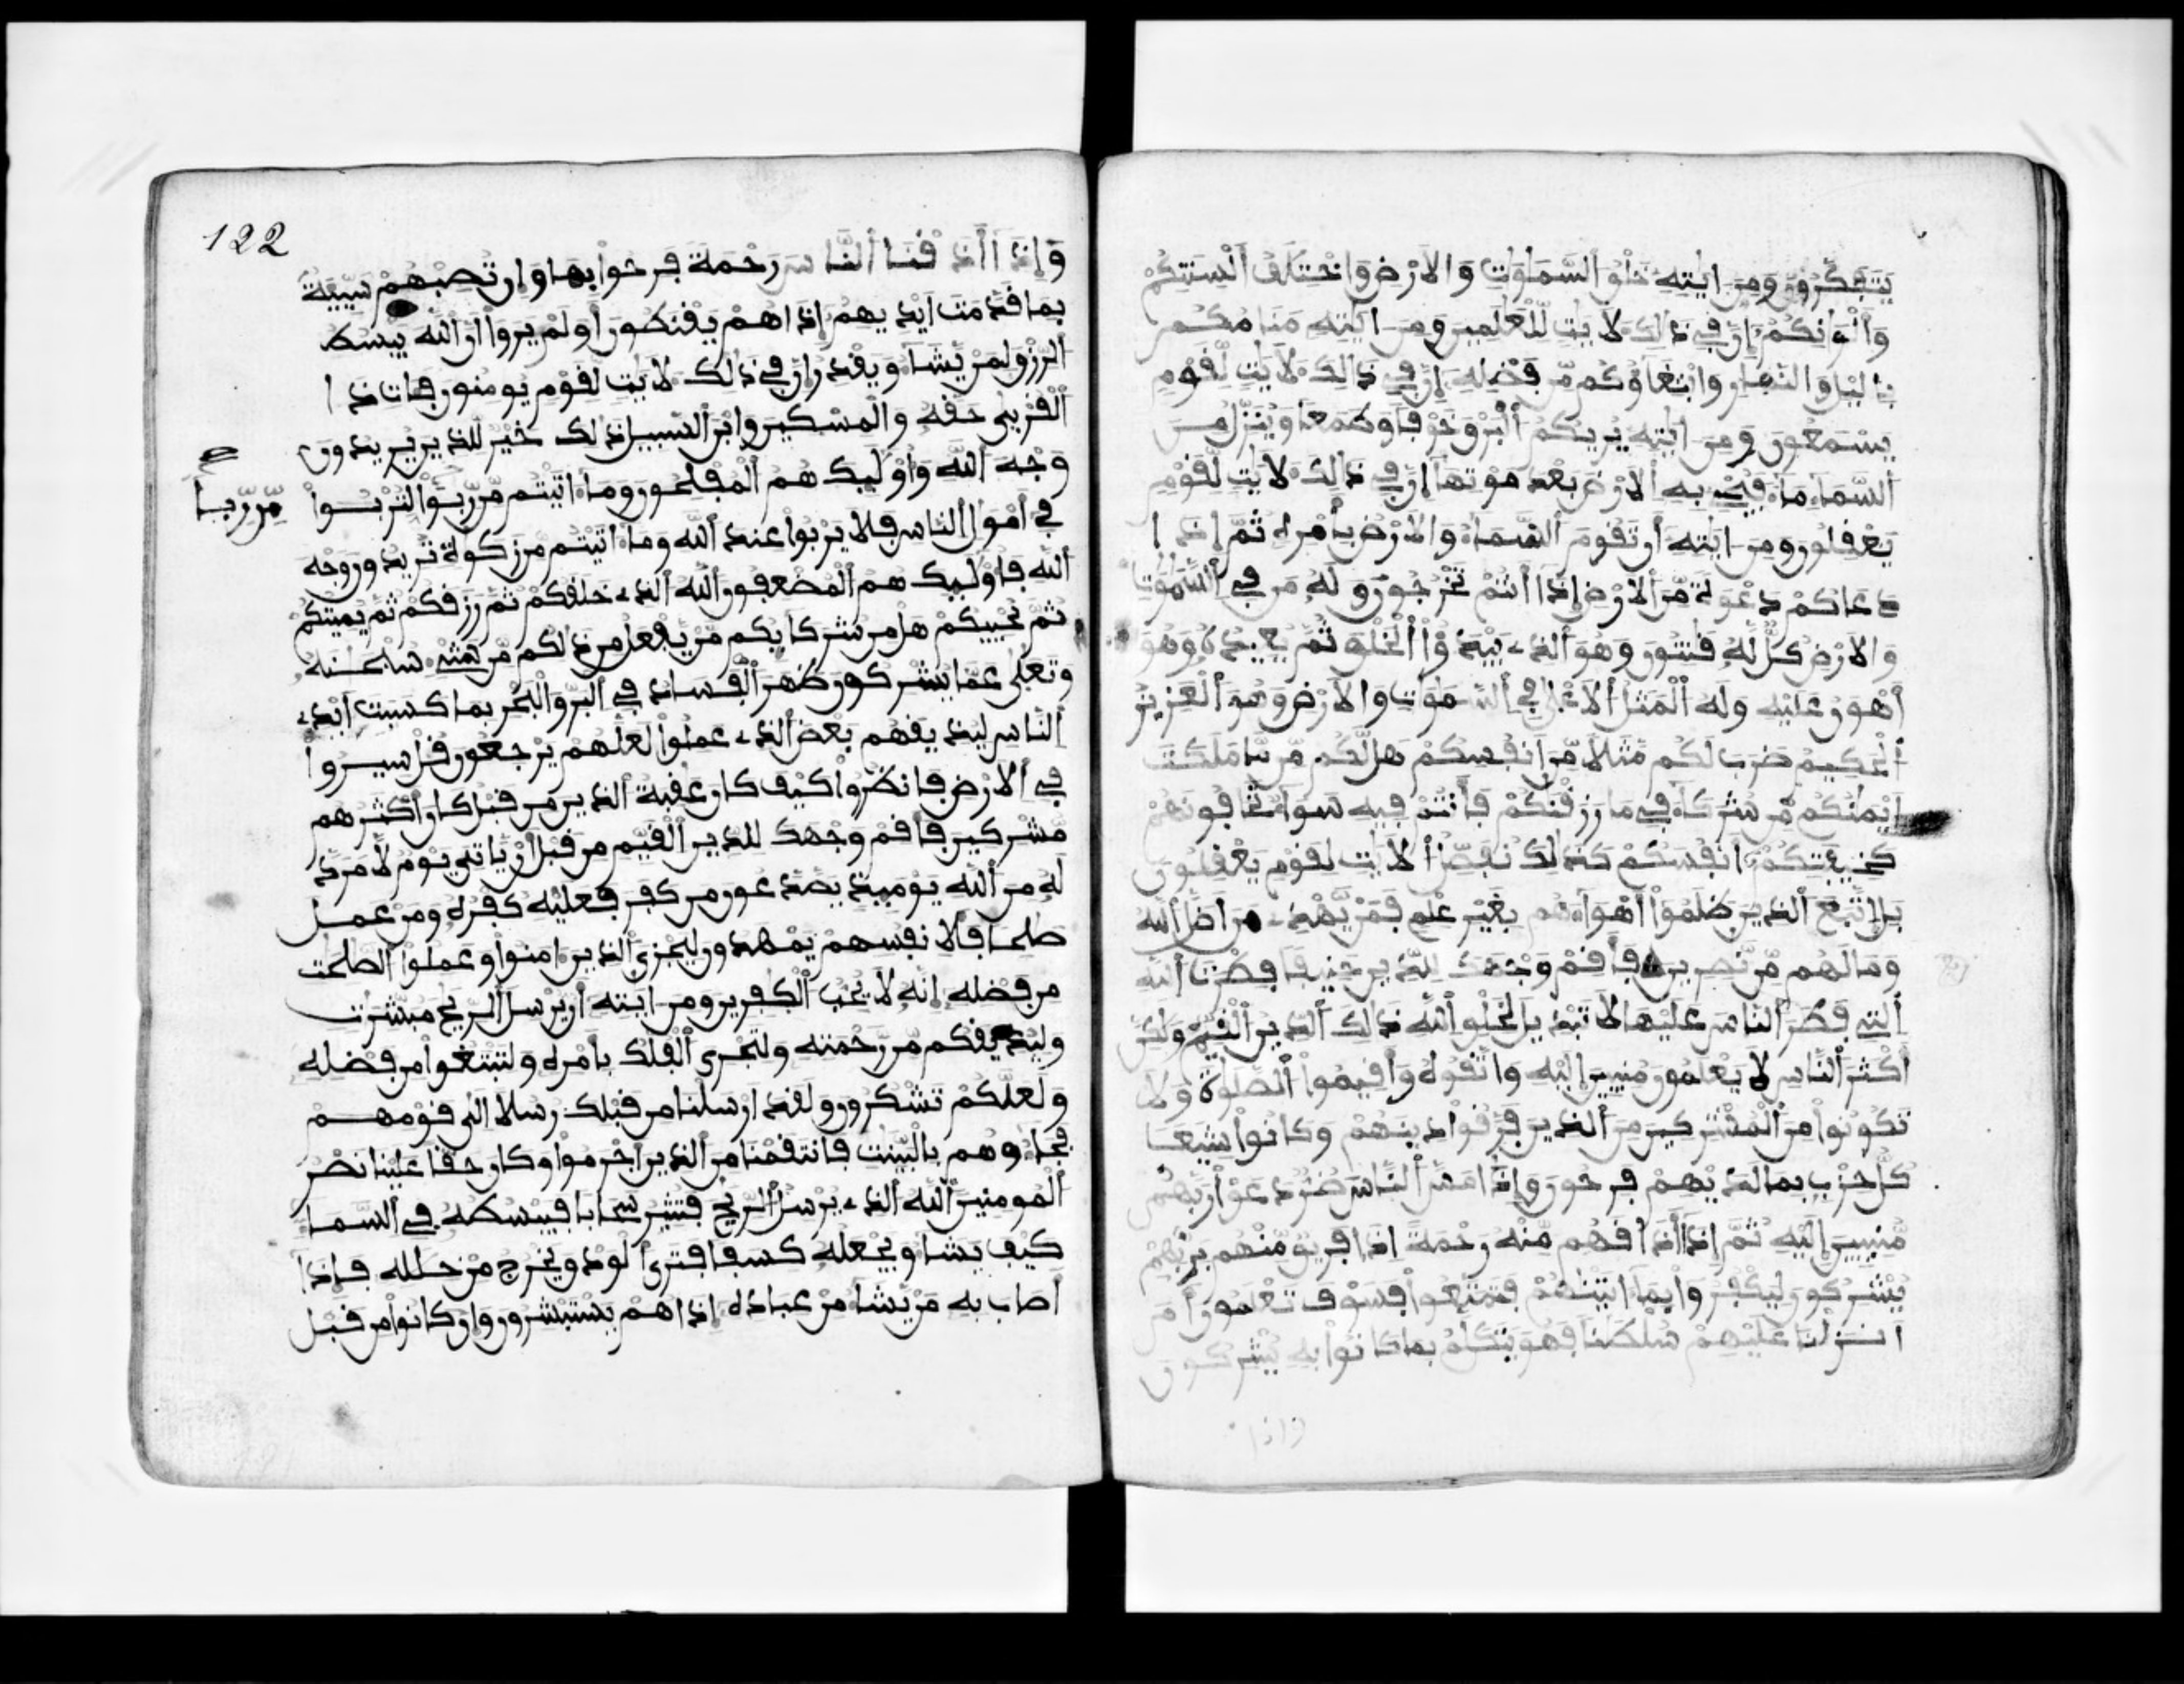 يتفكرون ومن ايته خلق السموات والارض واختلف ألسنتكم
وألوانكم إن في ذالك لايت للعلمين ومن ايته منامكم
باليل والنهار وابتغاؤكم من فضله إن في ذالك لايت لقوم
يسمعون ومن ايته يريكم البرق خوفا وطمعا وينزل من
السماء ماء فيحي به الارض بعد موتها إن في ذالك لايت لقوم
يعقلون ومن ايته أن تقوم السماء والارض بأمره ثم إذا
دعاكم دعوة من الارض إذا أنتم تخرجون وله من في السموت
والارض كل له قنتون وهو الذى يبدؤا الخلق ثم يعيده وهو
أهون عليه وله المثل الاعلى في السموات والارض وهو العزيز
الحكيم ضرب لكم مثلا من انفسكم هل لكم من ما ملكت
أيمنكم من شركاء في ما رزقنكم فأنتم فيه سواء تخافونهم
كخيفتكم انفسكم كذالك نفصل الايت لقوم يعقلون
بل اتبع الذين ظلموا أهواءهم بغير علم فمن يهدى من اضل الله
وما لهم من نصرين فأقم وجهك للدين حنيفا فطرت الله
التي فطر الناس عليها لا تبديل لخلق الله ذالك الدين القيم ولكن
أكثر الناس لا يعلمون منيبين إليه واتقوه وأقيموا الصلوة ولا
تكونوا من المشركين من الذين فرقوا دينهم وكانوا شيعا
كل حزب بما لديهم فرحون وإذا مس الناس ضر دعوا ربهم
منيبين إليه ثم إذا أذاقهم منه رحمة اذا فريق منهم بربهم
يشركون ليكفروا بما اتينهم فتمتعوا فسوف تعلمون أم
أنزلنا عليهم سلطنا فهو يتكلم بما كانوا به يشركون
واذا
122
وإذا أذقنا الناس رحمة فرحوا بها وإن تصبهم سيئة
بما قدمت أيديهم إذا هم يقنطون أولم يروا ان الله يبسط
الرزق لمن يشاء ويقدر إن في ذالك لايت لقوم يومنون فات ذا
القربى حقه والمسكين وابن السبيل ذالك خير للذين يريدون
وجه الله وأوليك هم المفلحون وما اتيتم من ربوا لتربوا
من ربا
في أموال الناس فلا يربوا عند الله وما اتيتم من زكوة تريدون وجه
الله فأوليك هم المضعفون الله الذى خلقكم ثم رزقكم ثم يميتكم
ثم يحييكم هل من شركايكم من يفعل من ذالكم من شيء سبحنه
وتعلى عما يشركون ظهر الفساد في البر والبحر بما كسبت أيدى
الناس ليذيقهم بعض الذى عملوا لعلهم يرجعون قل سيروا
في الارض فانظروا كيف كان عقبة الذين من قبل كان أكثرهم
مشركين فأقم وجهك للدين القيم من قبل أن ياتي يوم لا مرد
له من الله يوميذ يصدعون من كفر فعليه كفره ومن عمل
صلحا فلانفسهم يمهدون ليجزي الذين امنوا وعملوا الصلحت
من فضله إنه لا يحب الكفرين ومن ايته أن يرسل الريح مبشرت
وليذيقكم من رحمته ولتجري الفلك بأمره ولتبتغوا من فضله
ولعلكم تشكرون ولقد ارسلنا من قبلك رسلا الى قومهم
فجاءوهم بالبينت فانتقمنا من الذين أجرموا وكان حقا علينا نصر
المومنين الله الذى يرسل الريح فتثير سحابا فيبسطه في السماء
كيف يشاء ويجعله كسفا فترى الودق يخرج من خلله فإذا
أصاب به من يشاء من عباده إذا هم يستبشرون وإن كانوا من قبل